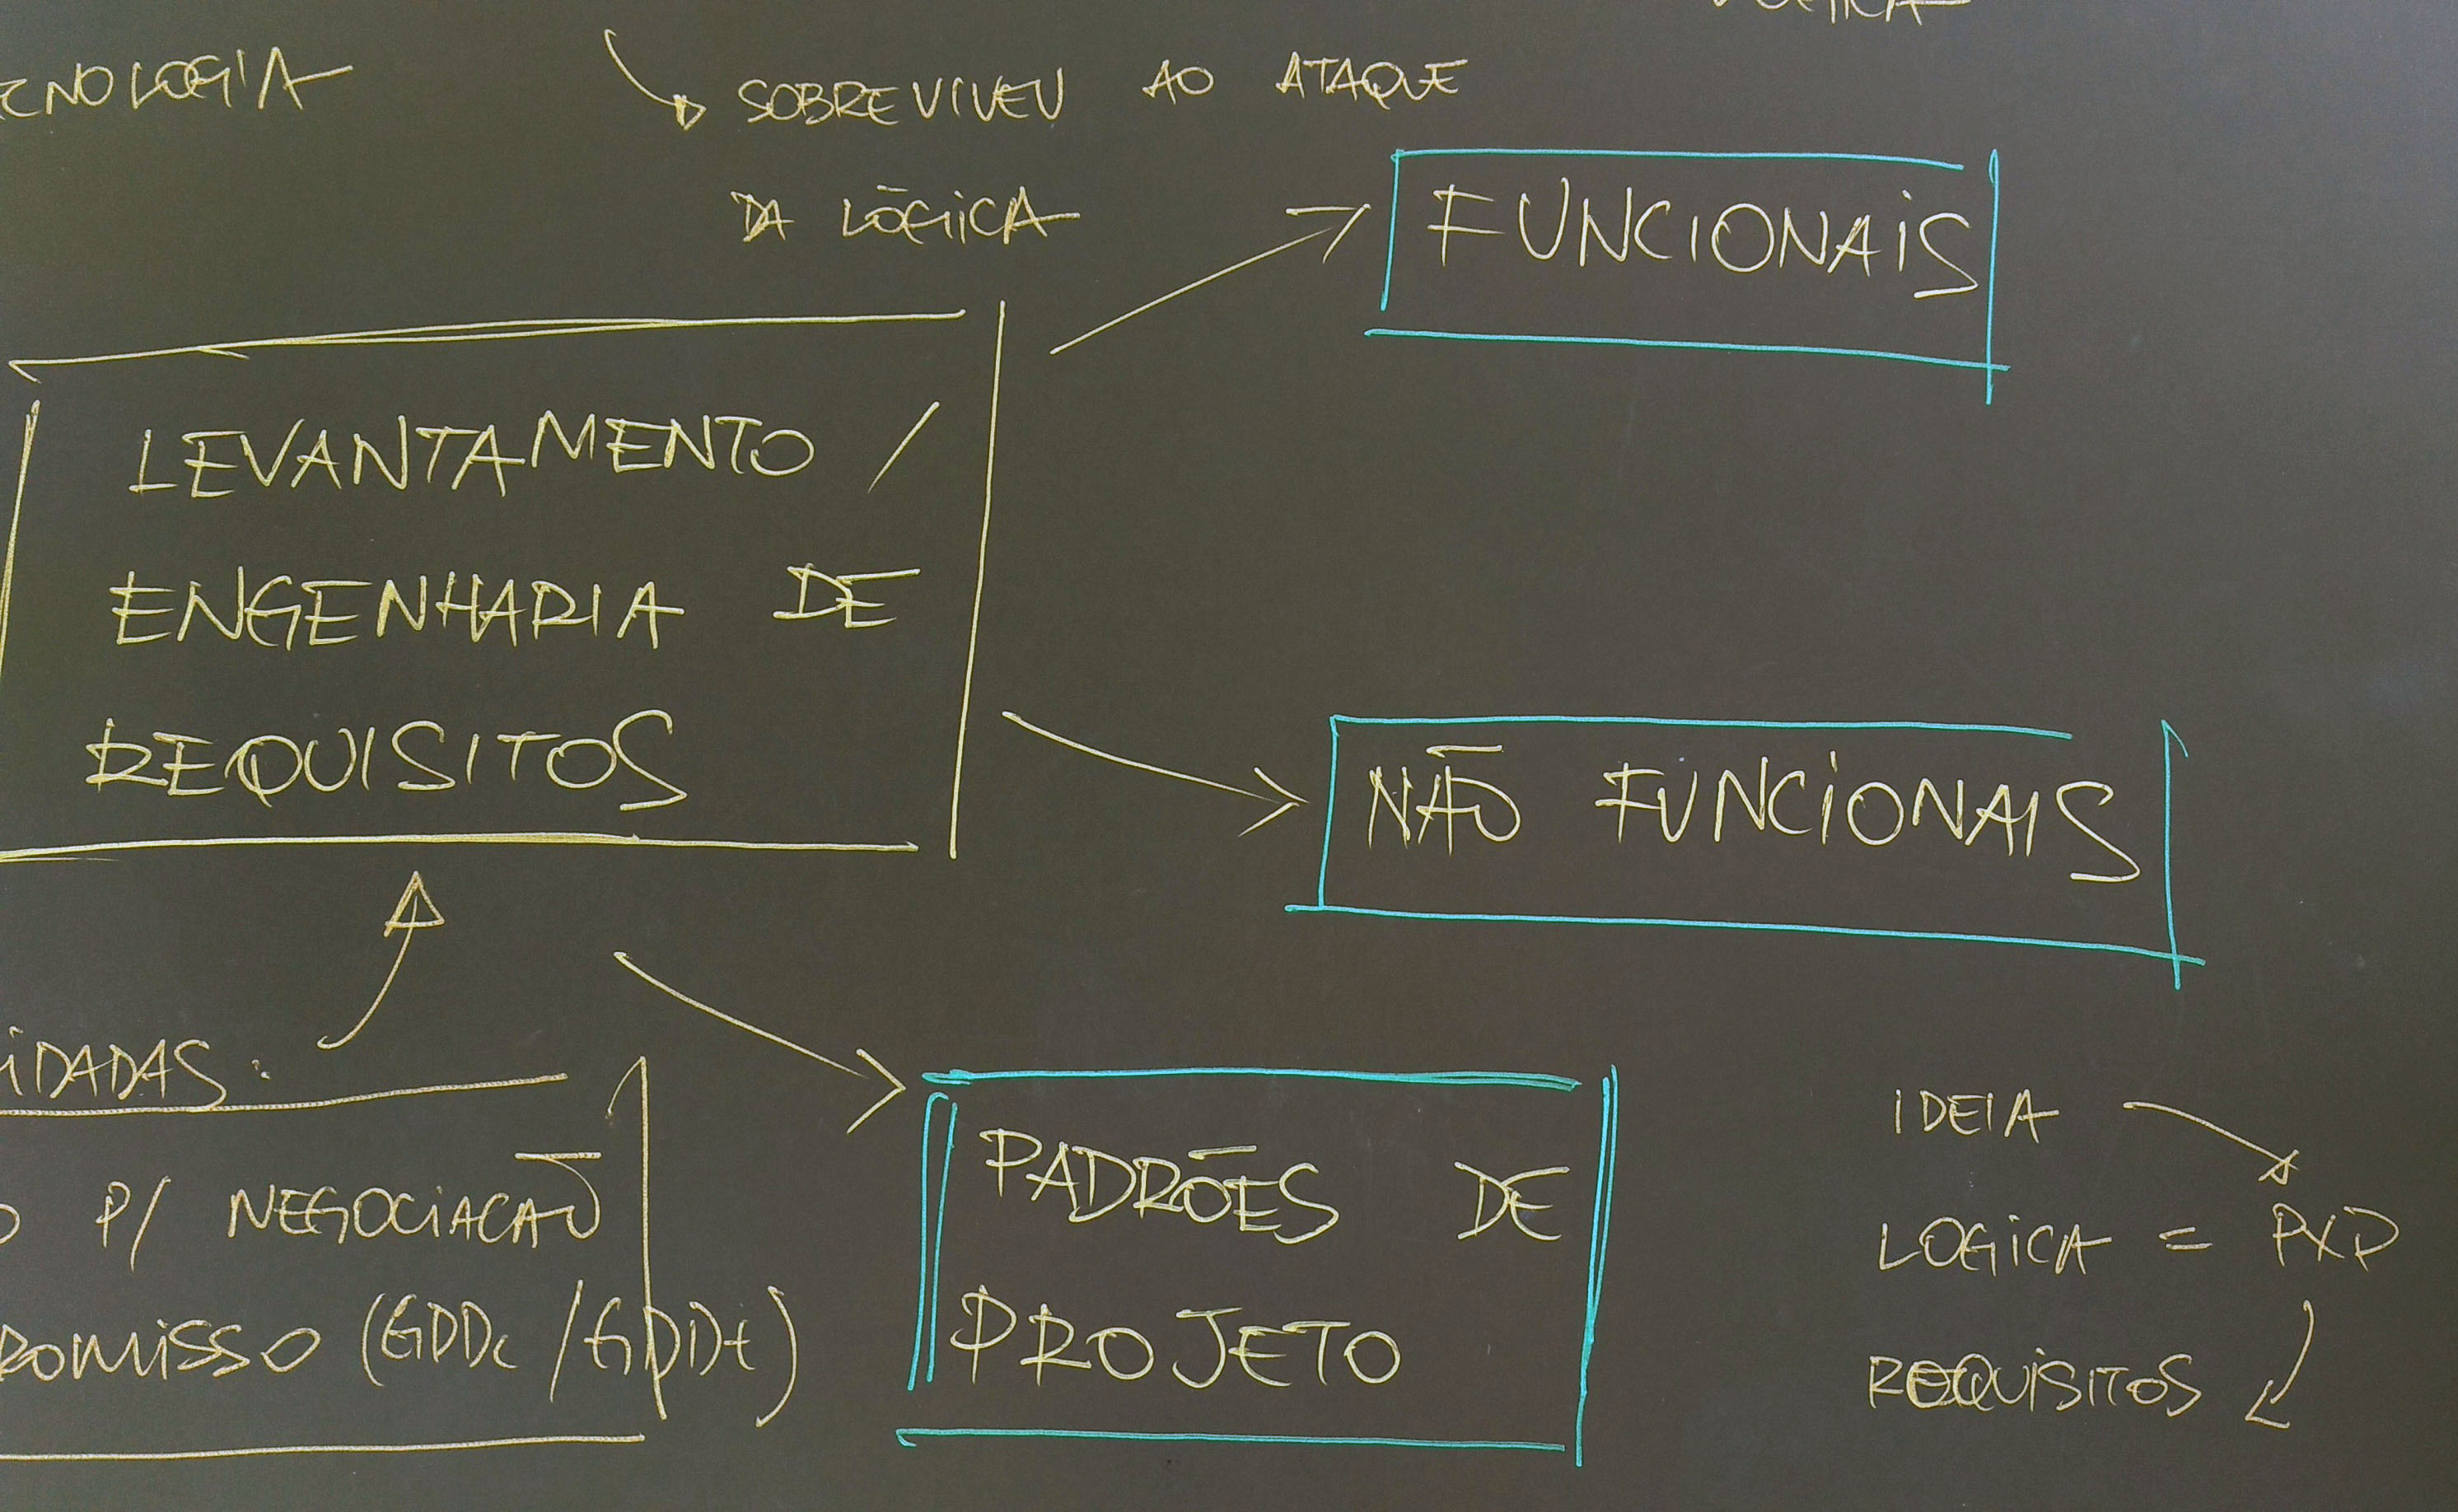 ECNOLOGIA
SOBREVIVEU AO ATAQUE
DA LÓGICA
FUNCIONAIS
LEVANTAMENTO /
ENGENHARIA DE
REQUISITOS
NÃO FUNCIONAIS
IDADAS:
P/ NEGOCIACAÕ
ROMISSO (GDDc /GDDt)
PADRÕES DE
PROJETO
IDEIA
LOGICA = PXP
REQUISITOS